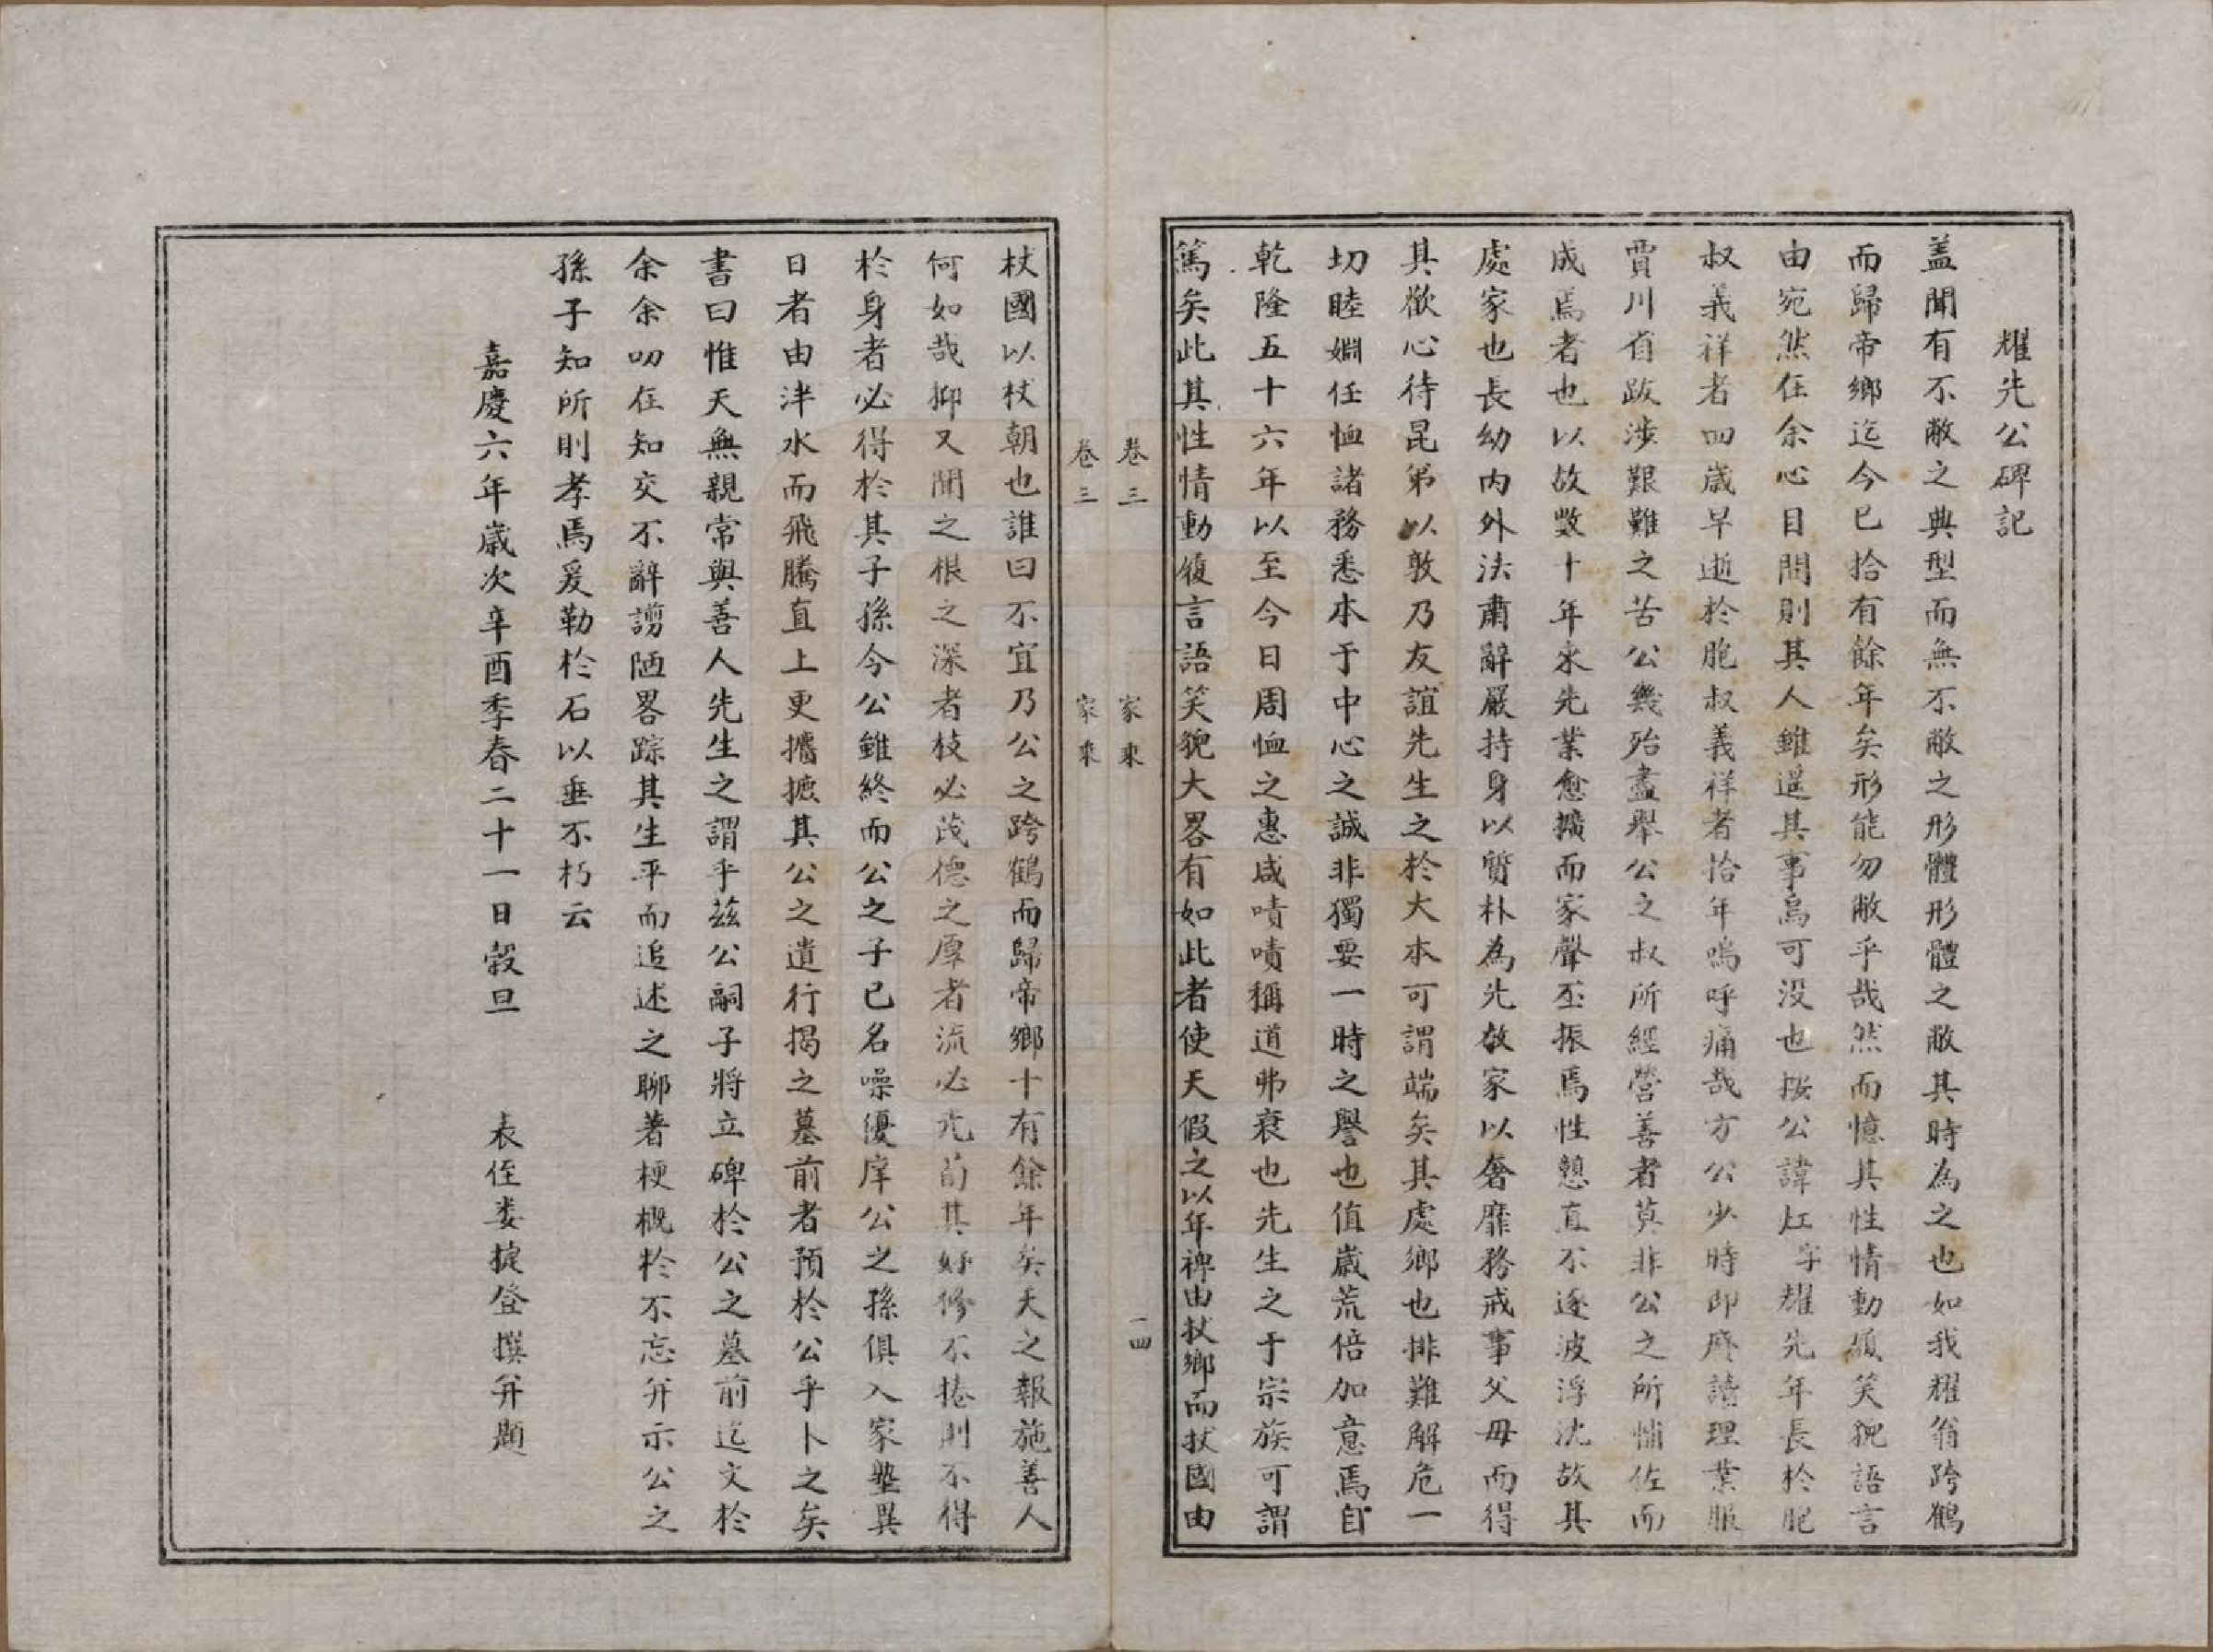 耀先公碑記
盖聞有不敝之典型而無不敝之形體形體之敝其時為之也如我耀翁跨鶴
而歸帝鄉迄今已拾有餘年矣形能勿敝乎哉然而憶其性情動履笑貌語言
由宛然在余心目間則其人雖遥其事烏可没也按公諱江字耀先年長於胞
叔義祥者四歲早逝於胞叔義祥者拾年嗚呼痛哉方公少時即廢讀理業服
賈川省跋涉艱難之苦公幾殆盡舉公之叔所經營善者莫非公之所惼佐而
成焉者也以故數十年來先業愈擴而家聲丕振焉性戇直不逐波浮沈故其
處家也長幼内外法肅辭嚴持身以質朴為先敎家以奢靡務戒事父母而得
其歡心待昆弟以敦乃友誼先生之於大本可謂端矣其處鄉也排難解危一
切睦婣任恤諸務悉本于中心之誠非獨要一時之譽也值歲荒倍加意焉自
乾隆五十六年以至今日周恤之惠咸嘖嘖稱道弗衰也先生之于宗族可謂
篤矣此其性情動履言語笑貌大畧有如此者使天假之以年裨由杖鄉而杖國由
卷三
家乘
一四
卷三
家乘
杖國以杖朝也誰曰不宜乃公之跨鶴而歸帝鄉十有餘年矣天之報施善人
何如哉抑又聞之根之深者枝必茂德之厚者流必光苟其好修不捲則不得
於身者必得於其子孫今公雖終而公之子已名噪優庠公之孫俱入家塾異
日者由泮水而飛騰直上更攟摭其公之遺行揭之墓前者預於公乎卜之矣
書曰惟天無親常與善人先生之謂乎兹公嗣子將立碑於公之墓前迄文於
余余叨在知交不辭謭陋畧踪其生平而追述之聊著梗概於不忘并示公之
孫子知所則孝焉爰勒於石以垂不朽云
嘉慶六年歲次辛酉季春二十一日穀旦
表侄娄捷登撰并題